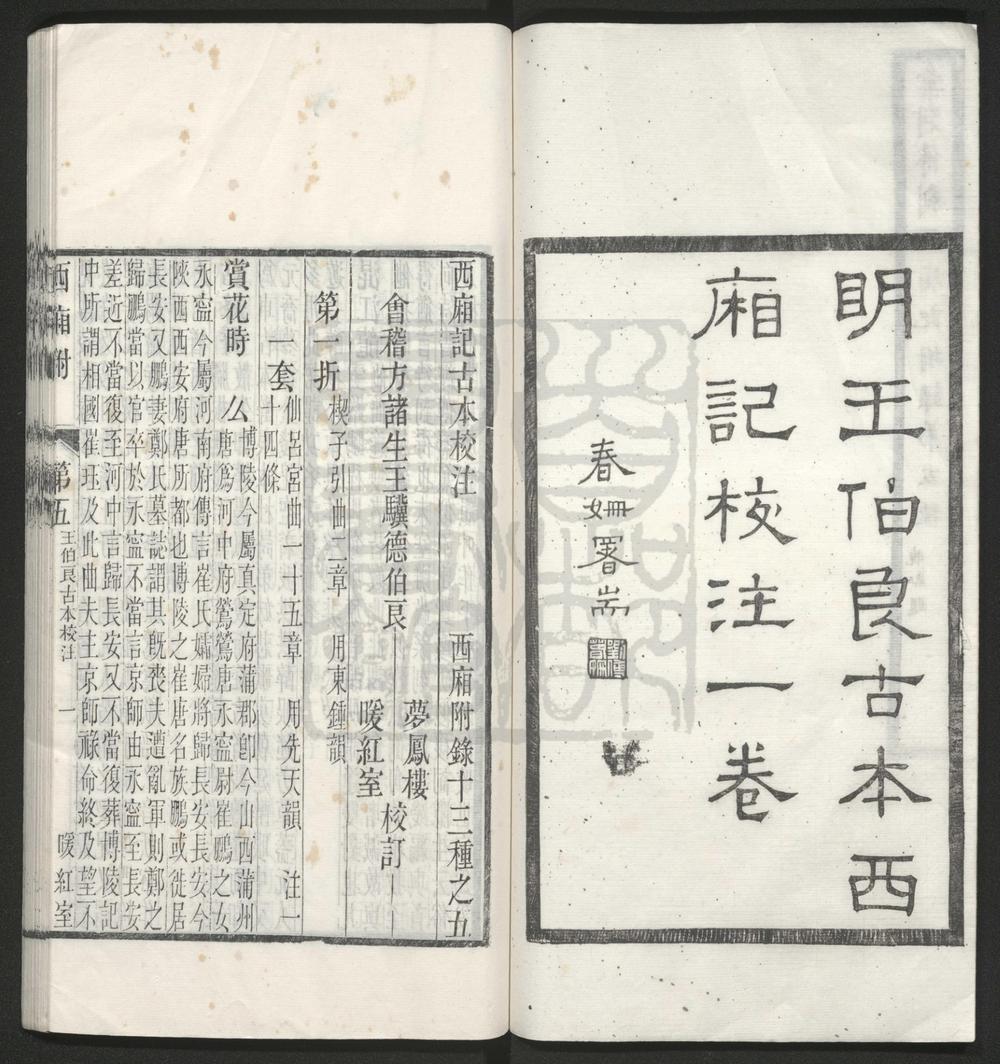 明王伯良古本西
廂記校注一卷
春姍署耑
西廂記古本校注　西廂附錄十三種之五
會稽方諸生王驥德伯良
夢鳳樓
暖紅室
校訂
第一折　楔子引曲二章　用東鍾韻
一套　仙呂宮曲一十五章　用先天韻　注一
十四條
賞花時　么　博陵今屬真定府蒲郡卽今山西蒲州
唐爲河中府鶯鶯唐永寍尉崔鵬之女
永寍今屬河南府傳言崔氏孀婦將歸長安長安今
陝西西安府唐所都也博陵之崔唐名族鵬或徙居
長安又鵬妻鄭氏墓誌謂其旣喪夫遭亂軍則鄭之
歸鵬當以官卒於永寍不當言京師由永寍至長安
差近不當復至河中言歸長安又不當復葬博陵記
中所謂相國崔珏及此曲夫主京師祿命終及望不
西廂附　第五　王伯良古本校注　一　暖紅室